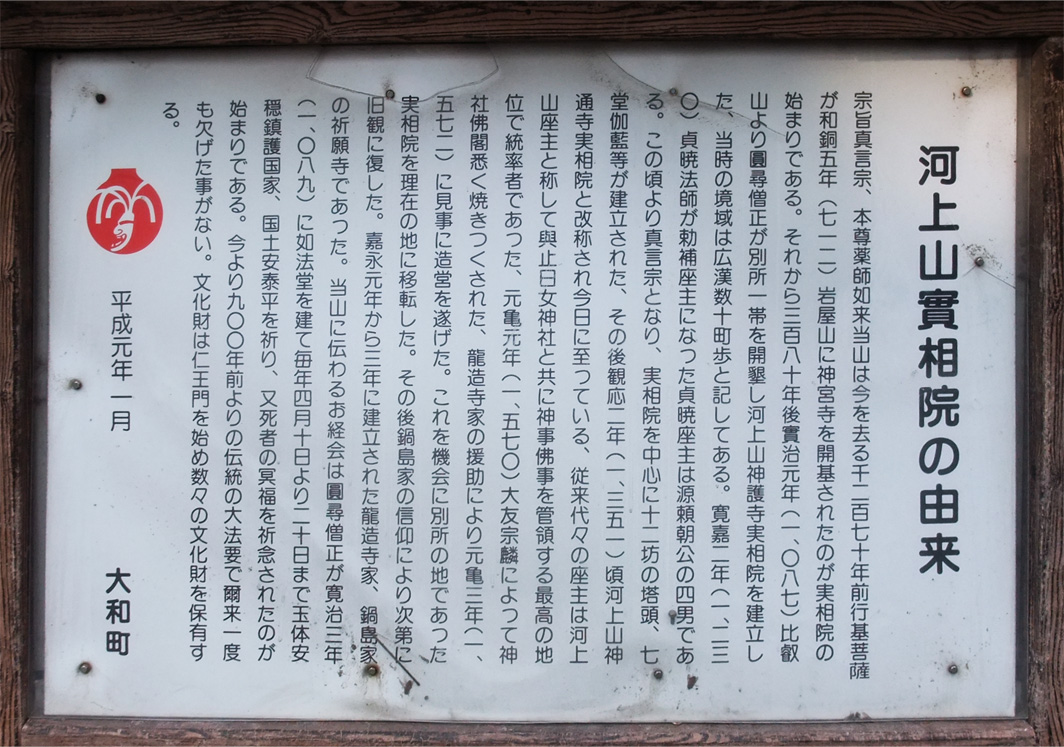 河上山實相院の由来
宗旨真言宗、本尊薬師如来当山は今を去る千二百七十年前行基菩薩
が和銅五年（七一二）岩屋山に神宮寺を開基されたのが実相院の
始まりである。それから三百八十年後實治元年（一、〇八七）比叡
山より圓尋僧正が別所一帯を開墾し河上山神護寺実相院を建立し
た、当時の境域は広漢数十町歩と記してある。寛嘉二年（一、二三
〇）貞暁法師が勅補座主になった貞暁座主は源頼朝公の四男であ
る。この頃より真言宗となり、実相院を中心に十二坊の塔頭、七
堂伽藍等が建立された、その後観応二年（一、三五一）頃河上山神
通寺実相院と改称され今日に至つている、従来代々の座主は河上
山座主と称して與止日女神社と共に神事佛事を管領する最高の地
位で統率者であった、元亀元年（一、五七〇）大友宗麟によって神
社佛閣悉く焼きつくされた、龍造寺家の援助により元亀三年（一、
五七二）に見事に造営を遂げた。これを機会に別所の地であった
実相院を理在の地に移転した。その後鍋島家の信仰により次第に
旧観に復した。嘉永元年から三年に建立された龍造寺家、鍋島家
の祈願寺であつた。当山に伝わるお経会は圓尋僧正が寛治三年
（一、〇八九）に如法堂を建て毎年四月十日より二十日まで玉体安
穏鎮護国家、国土安泰平を祈り、又死者の冥福を祈念されたのが
始まりである。今より九〇〇年前よりの伝統の大法要で爾来一度
も欠げた事がない。文化財は仁王門を始め数々の文化財を保有す
る。
平成元年一月
大和町